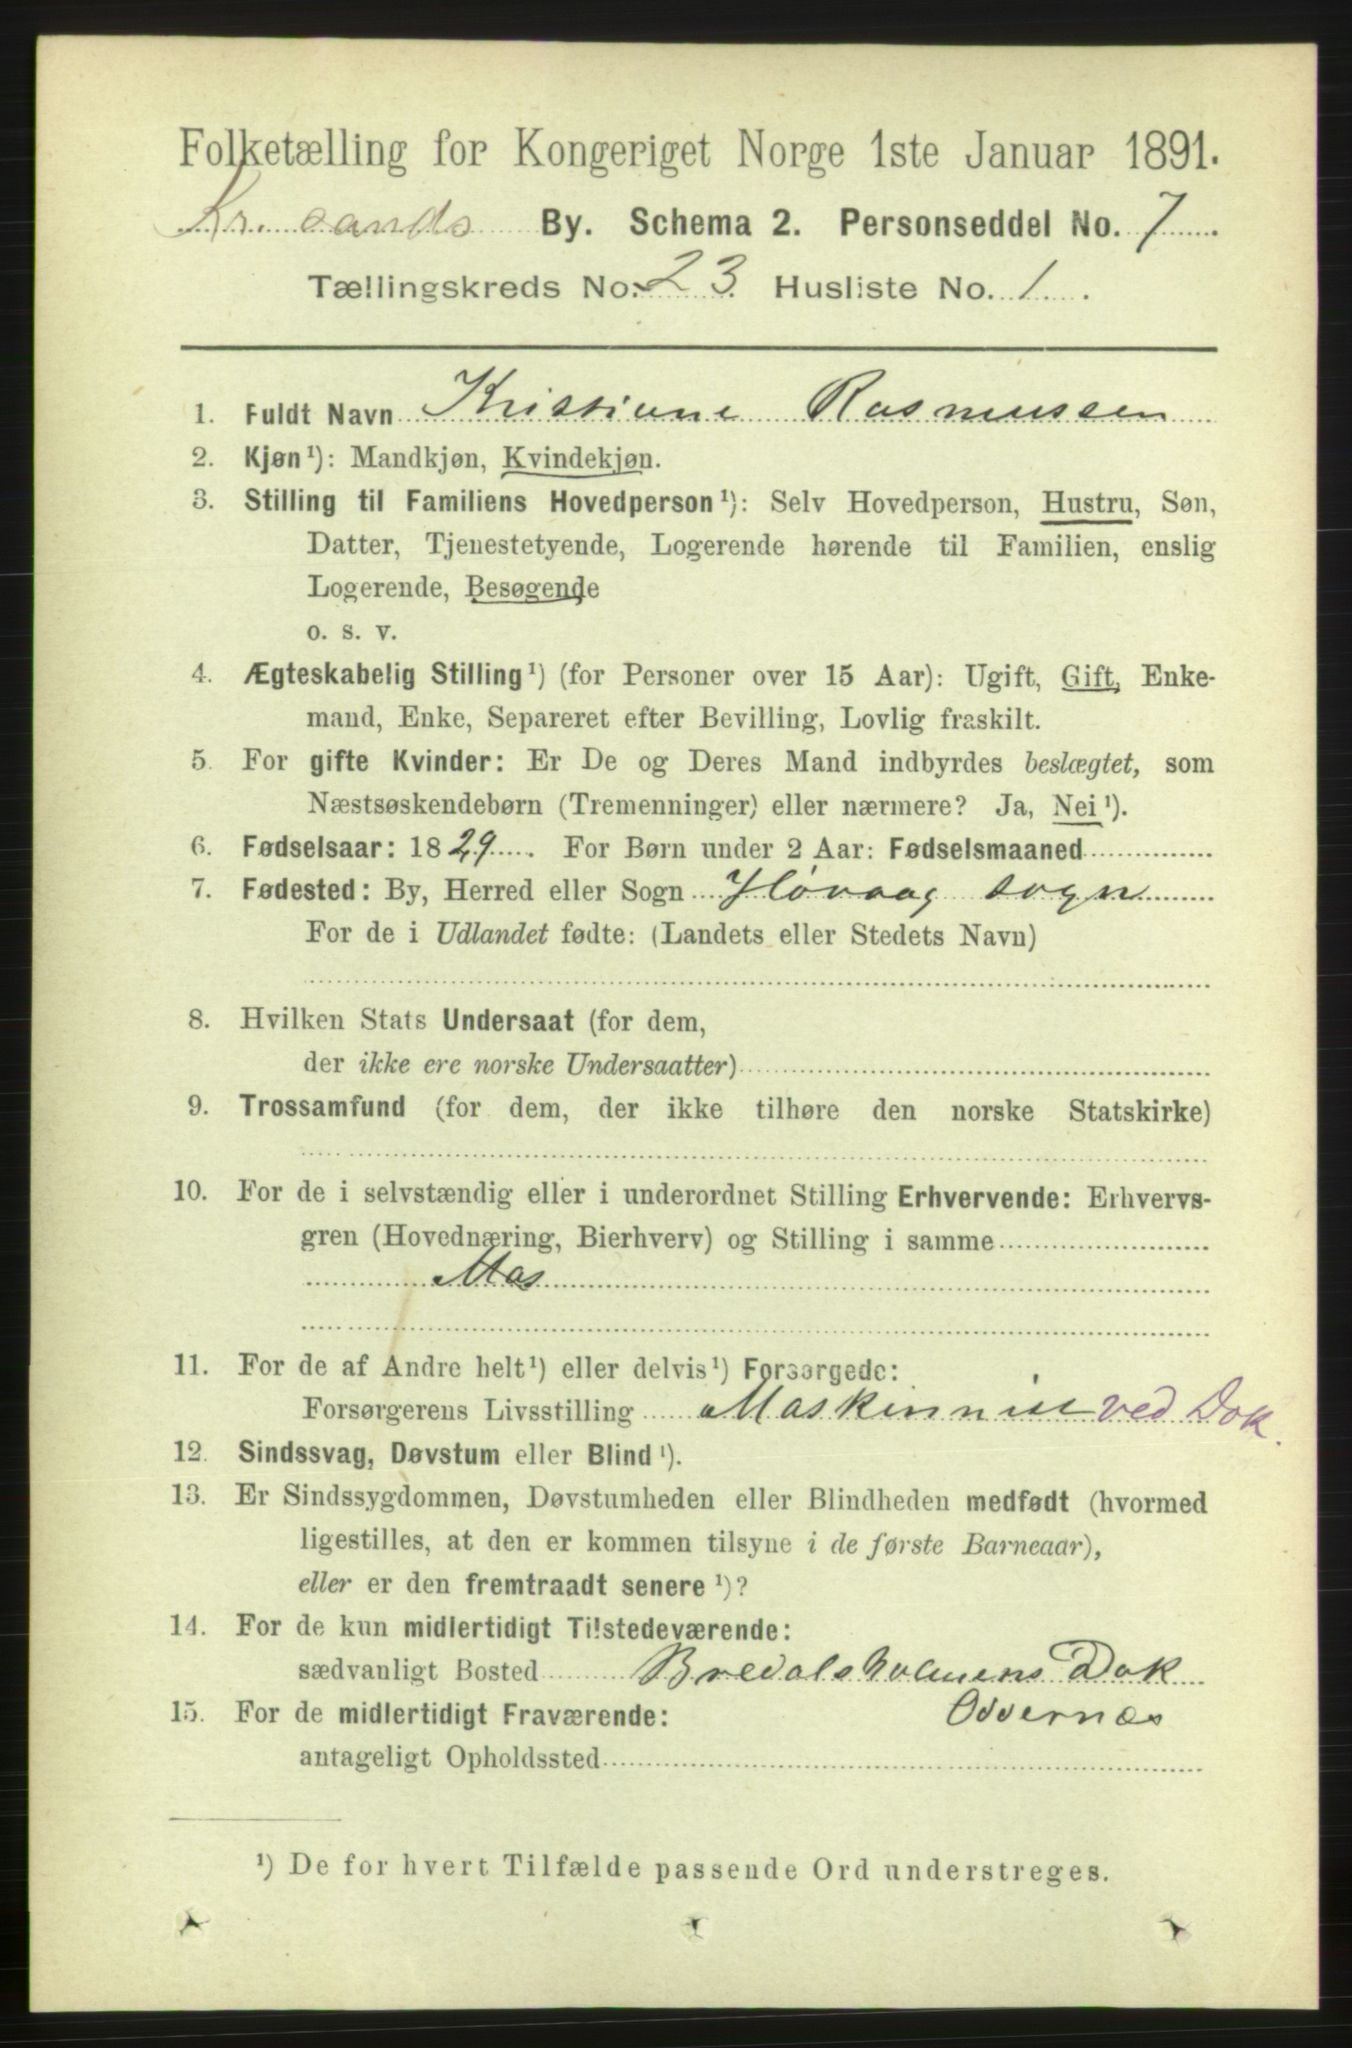 Folketælling for Kongeriget Norge 1ste Januar 1891.
Kr.sands By. Schema 2. Personseddel No. 7
Tællingskreds No. 23 Husliste No. 1
1. Fuldt Navn Kristiane Rasmussen
2. Kjøn ¹): Mandkjøn, Kvindekjøn.
3. Stilling til Familiens Hovedperson ¹): Selv Hovedperson, Hustru, Søn,
Datter, Tjenestetyende, Logerende hørende til Familien, enslig
Logerende, Besøgende
o. s. v.
4. Ægteskabelig Stilling ¹) (for Personer over 15 Aar): Ugift, Gift, Enke-
mand, Enke, Separeret efter Bevilling, Lovlig fraskilt.
5. For gifte Kvinder: Er De og Deres Mand indbyrdes beslægtet, som
Næstsøskendebørn (Tremenninger) eller nærmere? Ja, Nei ¹).
6. Fødselsaar: 1829. For Børn under 2 Aar: Fødselsmaaned
7. Fødested: By, Herred eller Sogn Høvaag sogn
For de i Udlandet fødte: (Landets eller Stedets Navn)
8. Hvilken Stats Undersaat (for dem,
der ikke ere norske Undersaatter)
9. Trossamfund (for dem, der ikke tilhøre den norske Statskirke)
10. For de i selvstændig eller i underordnet Stilling Erhvervende: Erhvervs-
gren (Hovednæring, Bierhverv) og Stilling i samme
Mas
11. For de af Andre helt ¹) eller delvis ¹) Forsørgede:
Forsørgerens Livsstilling Maskinnist ved Dok.
12. Sindssvag, Døvstum eller Blind ¹).
13. Er Sindssygdommen, Døvstumheden eller Blindheden medfødt (hvormed
ligestilles, at den er kommen tilsyne i de første Barneaar),
eller er den fremtraadt senere ¹)?
14. For de kun midlertidigt Tilstedeværende:
sædvanligt Bosted Bredalsholmens Dok
15. For de midlertidigt Fraværende: Oddernæs
antageligt Opholdssted
¹) De for hvert Tilfælde passende Ord understreges.